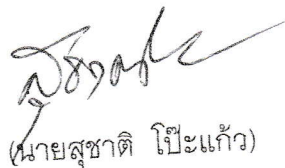 (นายสุชาติ โป๊ะแก้ว)